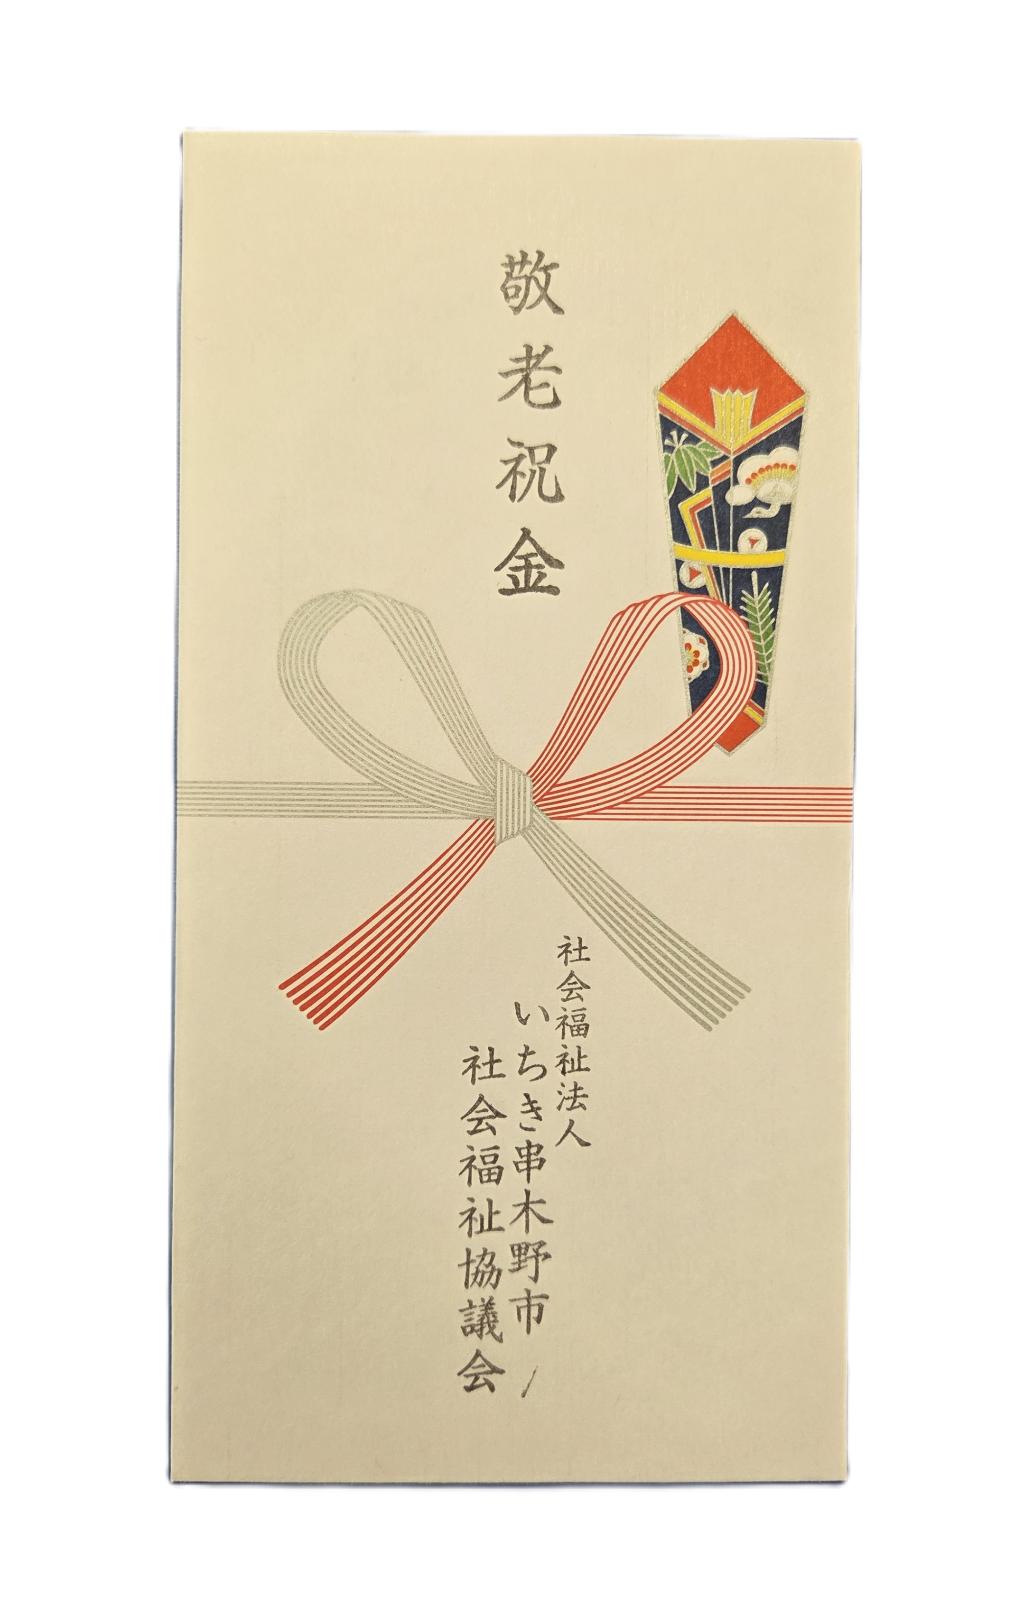 敬老祝金
社会福祉法人
いちき串木野市
社会福祉協議会